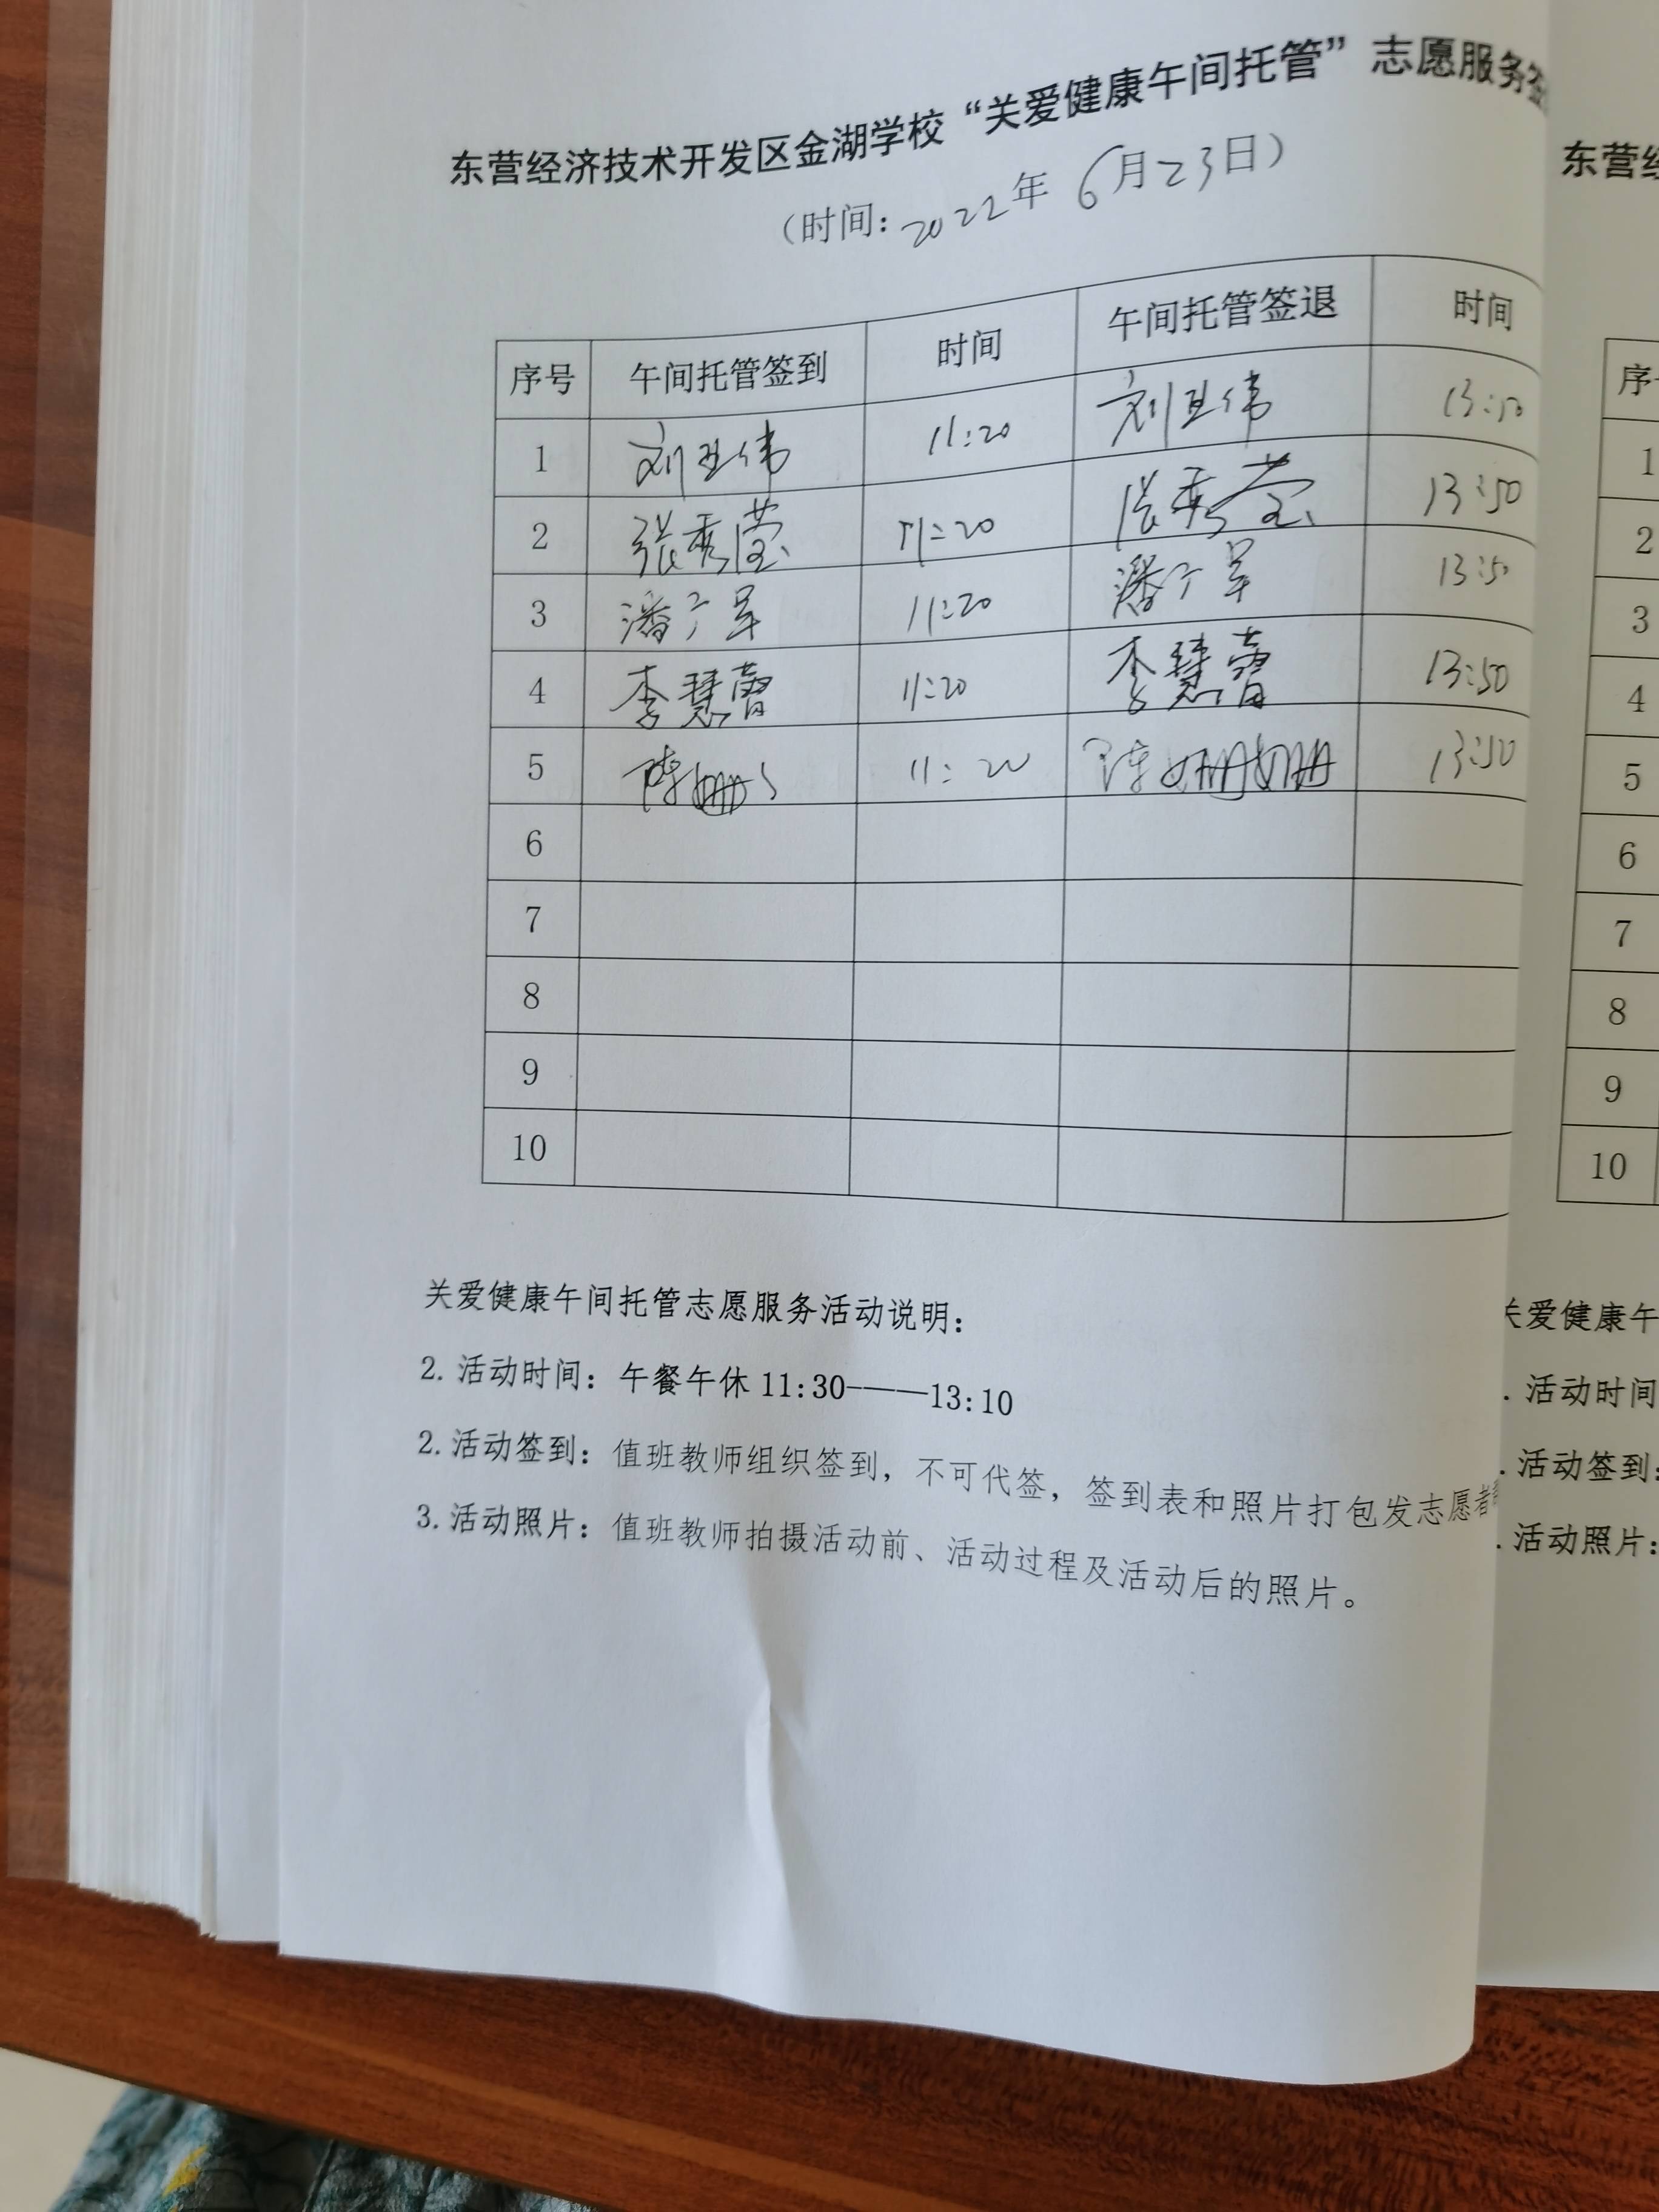 东营经济技术开发区金湖学校“关爱健康午间托管”志愿服务签
（时间：2022年6月23日）
序号 午间托管签到 时间 午间托管签退 时间
1 刘卫伟 11:20 刘卫伟 13:50
2 张秀莹 11:20 张秀莹 13:50
3 潘广军 11:20 潘广军 13:50
4 李慧蕾 11:20 李慧蕾 13:50
5 陈姗姗 11:20 陈姗姗 13:50
6
7
8
9
10
关爱健康午间托管志愿服务活动说明：
2.活动时间：午餐午休11:30———13:10
2.活动签到：值班教师组织签到，不可代签，签到表和照片打包发志愿者
3.活动照片：值班教师拍摄活动前、活动过程及活动后的照片。
东营经
序
1
2
3
4
5
6
7
8
9
10
关爱健康午
.活动时间
.活动签到：
.活动照片：